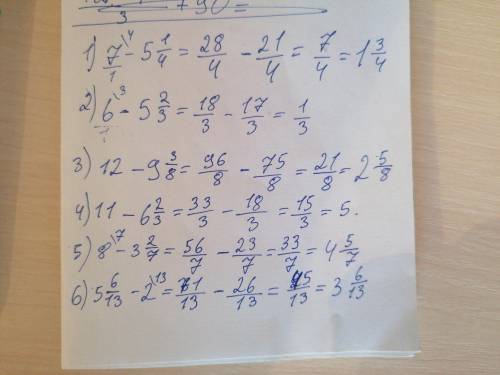 3 + 90 =
1) 7/1 \4 - 5 1/4 = 28/4 - 21/4 = 7/4 = 1 3/4
2) 6/1 \3 - 5 2/3 = 18/3 - 17/3 = 1/3
3) 12 - 9 3/8 = 96/8 - 75/8 = 21/8 = 2 5/8
4) 11 - 6 2/3 = 33/3 - 18/3 = 15/3 = 5.
5) 8 \7 - 3 2/7 = 56/7 - 23/7 = 33/7 = 4 5/7
6) 5 6/13 - 2 \13 = 71/13 - 26/13 = 45/13 = 3 6/13